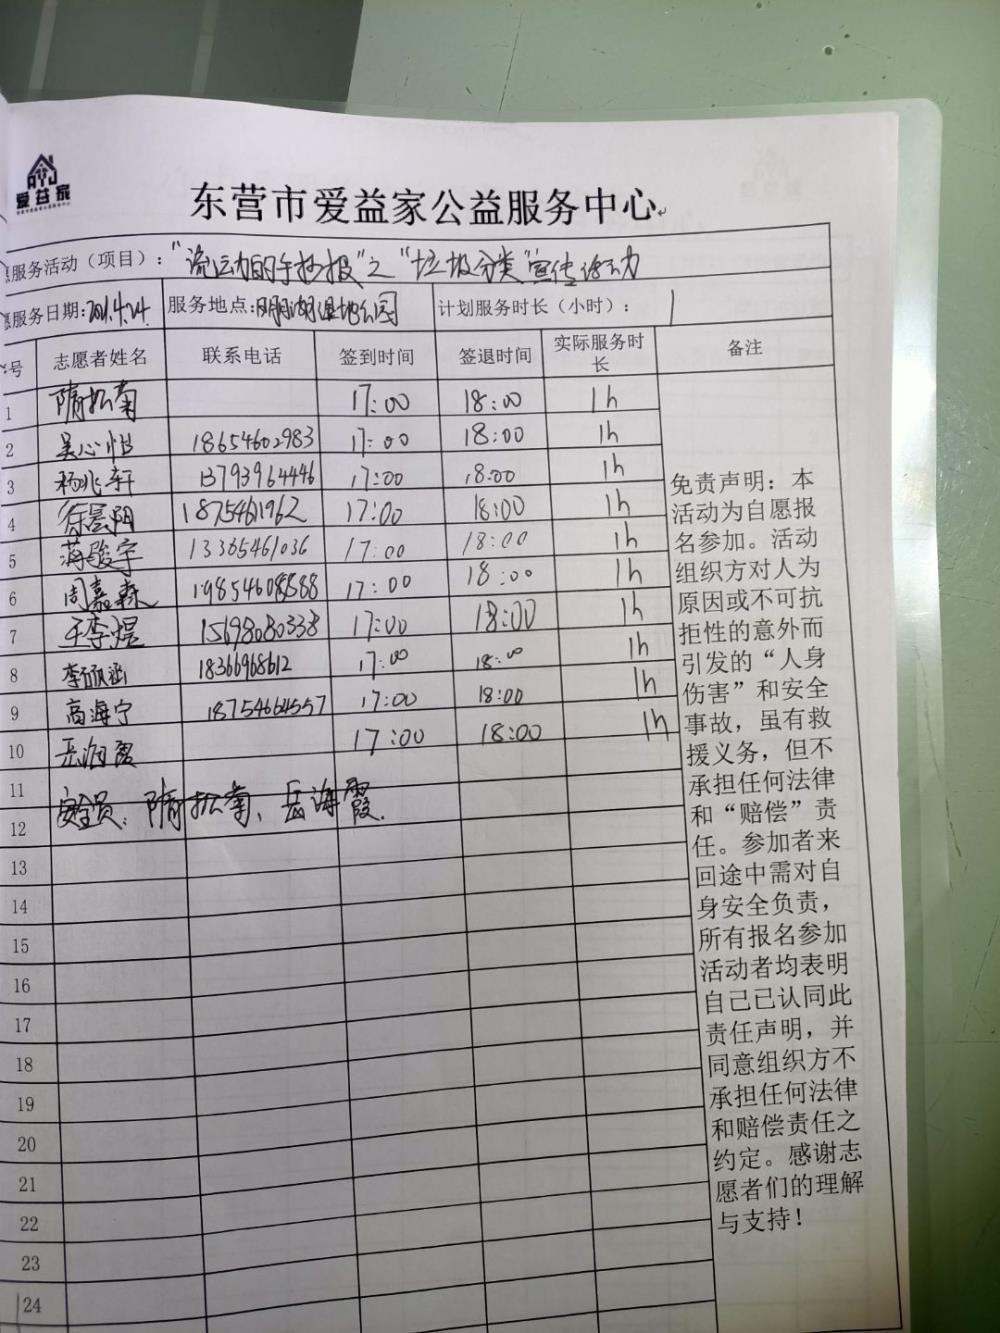 爱益家
东营市爱益家公益服务中心
服务活动（项目）：“流动的手抄报”之“垃圾分类”宣传活动
愿服务日期：2021.4.24. 服务地点：明月湖湿地公园 计划服务时长（小时）： 1
号 志愿者姓名 联系电话 签到时间 签退时间 实际服务时长 备注
1 隋松菊 17:00 18:00 1h
2 吴心怡 18654602983 17:00 18:00 1h
3 杨兆轩 13793964446 17:00 18:00 1h
4 徐晨阳 18754611962 17:00 18:00 1h
5 蒋骏宇 13365461036 17:00 18:00 1h
6 周嘉森 17:00 18:00 1h
7 王李煜 15698080338 17:00 18:00 1h
8 18366968612 17:00 18:00 1h
9 高海宁 18754664557 17:00 18:00 1h
10 岳海霞 17:00 18:00 1h
11
安全员：隋松菊、岳海霞.
12
13
14
15
16
17
18
19
20
21
22
23
24
免责声明：本
活动为自愿报
名参加。活动
组织方对人为
原因或不可抗
拒性的意外而
引发的“人身
伤害”和安全
事故，虽有救
援义务，但不
承担任何法律
和“赔偿”责
任。参加者来
回途中需对自
身安全负责，
所有报名参加
活动者均表明
自己已认同此
责任声明，并
同意组织方不
承担任何法律
和赔偿责任之
约定。感谢志
愿者们的理解
与支持！